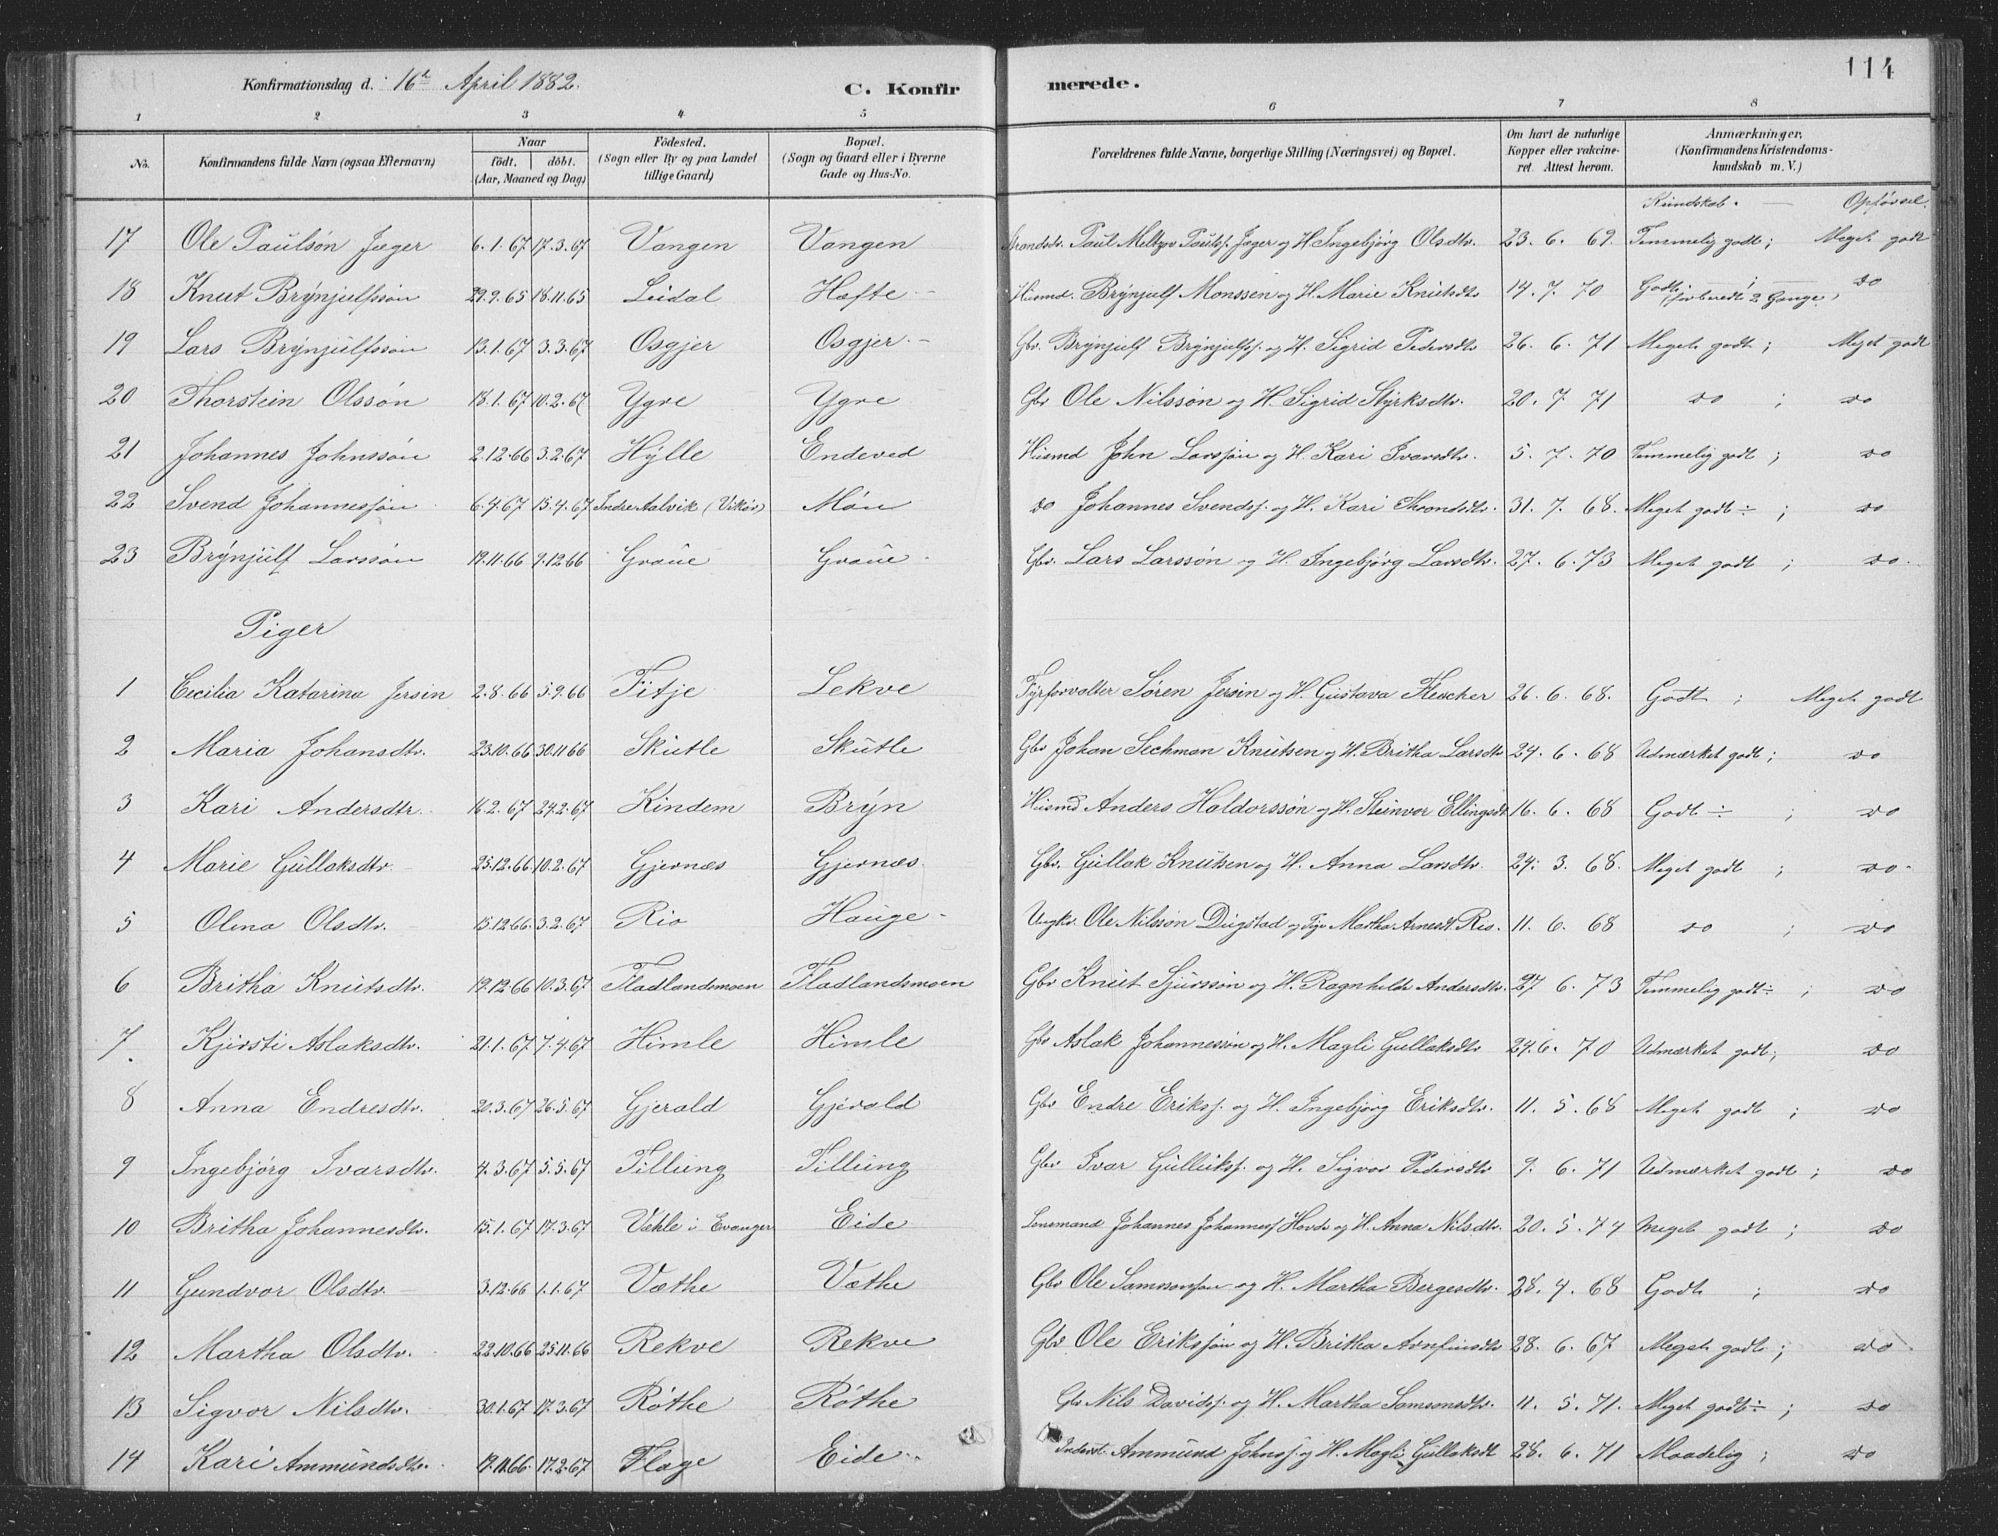 114
Konfirmationsdag d. 16de April 1882.
C. Konfirmerede.
1 2 3 4 5 6 7 8
No. Konfirmandens fulde Navn (ogsaa Efternavn) Naar født. døbt. (Aar, Maaned og Dag) Fødested. (Sogn eller By og paa Landet tillige Gaard) Bopæl. (Sogn og Gaard eller i Byerne Gade og Hus-No. Forældrenes fulde Navne, borgerlige Stilling (Næringsvei) og Bopæl. Om havt de naturlige Kopper eller vakcineret. Attest herom. Anmærkninger, (Konfirmandens Kristendomskundskab m. V.)
Kundskab. — Opførsel.
17 Ole Paulsøn Jæger 6.1.67 17.3.67 Vangen Vangen Strandsidr. Paul Meltzer Pauls. Jæger og H. Ingebjørg Olsdtr. 23. 6. 69. Temmelig godt; Meget godt
18 Knut Brynjulfssøn 29.9.65 18.11.65 Leidal Hæfte Husmd. Brynjulf Monssen og H. Marie Knutsdtr 14. 7. 70 Godt; forberedt 2 Gange, do
19 Lars Brynjulfssøn 13.1.67 3.3.67 Osgjer Osgjer Gbr. Brynjulf Brynjulfs. og H. Sigrid Pedersdtr 26. 6. 71 Meget godt; Meget godt
20 Thorstein Olssøn 18.1.67 10.2.67 Ygre Ygre Gbr Ole Nilssøn og H. Sigrid Styrksdtr. 20. 7. 71 do ; do
21 Johannes Johnssøn 2.12.66 3.2.67 Hylle Endeved Husmd John Larssøn og H. Kari Ivarsdtr. 5. 7. 70 Temmelig godt; do
22 Svend Johannessøn 6.4.67 15.4.67 Indre Aalvik (Vikør) Møn do Johannes Svends. og H. Kari Throndsdtr. 31. 7. 68. Meget godt ÷ ; do
23 Brynjulf Larssøn 19.11.66 9.12.66 Graue Graue Gbr. Lars Larssøn og H. Ingebjørg Larsdtr. 27. 6. 73 Meget godt ; do
Piger
1 Cecilia Katarina Jersin 2.8.66 5.9.66 Fitje Lekve Fyrforvalter Søren Jersin og H. Gustava Fleischer 26. 6. 68. Godt ; Meget godt
2 Maria Johansdtr. 23.10.66 30.11.66 Skutle Skutle Gbr Johan Sechman Knutsen og H. Britha Larsdtr 24. 6. 68 Udmærket godt; do
3 Kari Andersdtr. 16.2.67 24.2.67 Kindem Bryn Husmd Anders Haldorssøn og H. Steinvor Ellingsdt 16. 6. 68 Godt ÷ ; do
4 Marie Gullaksdtr. 25.12.66 10.2.67 Gjernæs Gjernæs. Gbr. Gullak Knutsen og H. Anna Larsdtr. 24. 3. 68. Meget godt ; do
5 Olena Olsdtr. 15.12.66. 3.2.67 Rio Hauge Ungkr. Ole Nilssøn Dugstad og Pige Martha Arnesdt. Rio. 11. 6. 68 do ; do
6 Britha Knutsdtr. 19.12.66 10.3.67. Fladlandsmoen Fladlandsmoen Gbr Knut Sjurssøn og H. Ragnhilde Andersdtr. 27 6. 73 Temmelig godt ÷ ; do
7. Kjirsti Aslaksdtr. 21.1.67. 7.4.67 Himle Himle Gbr Aslak Johannessøn og H. Magli Gullaksdtr 24.6. 70 Udmærket godt; do
8 Anna Endresdtr. 20.3.67 26.5.67 Gjerald Gjerald Gbr Endre Eriks. og H. Ingebjørg Eriksdtr. 11. 5. 68 Meget godt ; do
9 Ingebjørg Ivarsdtr. 4.3.67 5.5.67 Tillung Tillung Gbr Ivar Gulleiks. og H. Sigvor Pedersdtr 9. 6. 71 Udmærket godt ; do
10 Britha Johannesdtr. 15.1.67 17.3.67 Væhle i Evanger Eide Lensmand Johannes Johanness. Hovda og H. Anna Nilsdtr. 20. 5. 74 Meget godt ; do
11 Gundvor Olsdtr. 3.12.66 1.1.67 Væthe Væthe Gbr Ole Samsonsøn og H. Martha Bergesdtr. 28. 4. 68 Godt ; do
12 Martha Olsdtr. 22.10.66 25.11.66 Rekve Rekve Gbr Ole Erikssøn og H. Britha Arnfinsdtr 28. 6. 67 Meget godt ; do
13 Sigvor Nilsdtr. 30.1.67 17.3.67 Røthe Røthe Gbr Nils Davids. og H. Martha Samsonsdtr. 11. 5. 71. Meget godt ÷ ; do
14 Kari Ammundsdtr. 19.11.66. 17.2.67 Flage Eide Inderst. Ammund Johns. og H. Magli Gullaksdt 28. 6. 71 Maadelig ; do